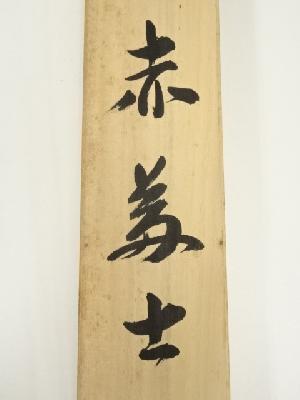 赤富士